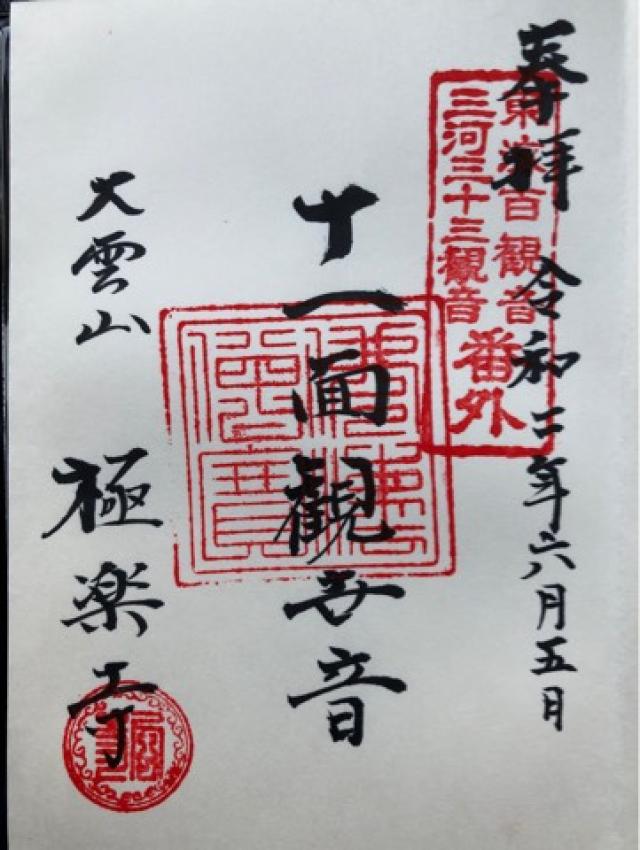 奉拝 令和二年六月五日
東海百観音
三河三十三觀音
番外
十一面観世音
大雲山 極楽寺